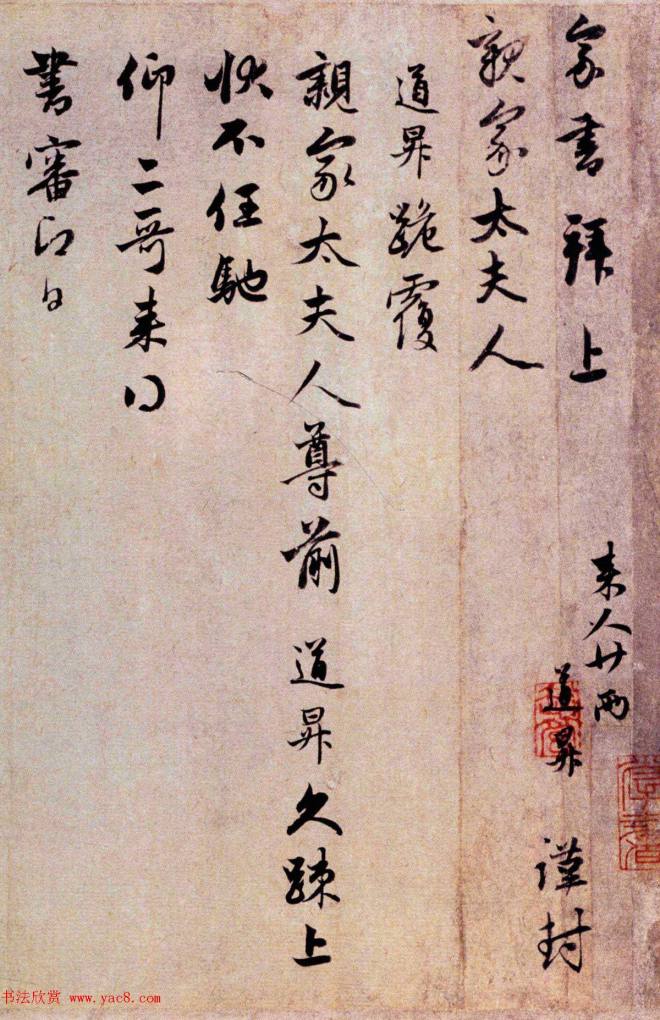 家書拜上
来人廿两
道昇 謹封
親家太夫人
道昇跪覆
親家太夫人尊前 道昇久踈上
狀不任馳
仰二哥来
書審即日
书法欣赏 www.yac8.com